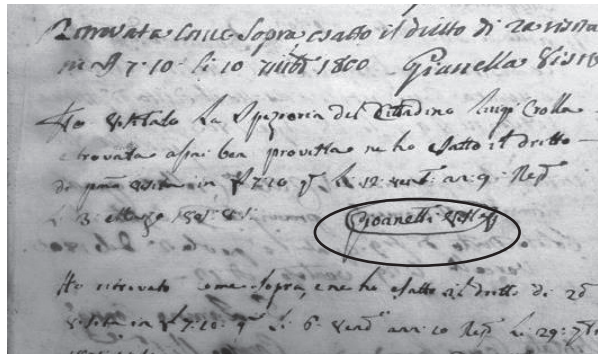 Ritrovata come sopra esatto il diritto di 2a visita
in £ 7.10 li 10 7mbre 1800 Gianella Visre
Ho visitato La Spezieria del Cittadino Luigi Crolla
e trovata assai ben provista ne ho esatto il dritto
di pma visita in £ 7:10 li 12: vent: an: 9: Rep
Li 3: Marzo 1801:
Gioanetti
Ho ritrovato come sopra, e ne ho esatto il dritto di 2da
visita in £ 7:10: li 6: vend an: 10 Rep Li 29: 7bre